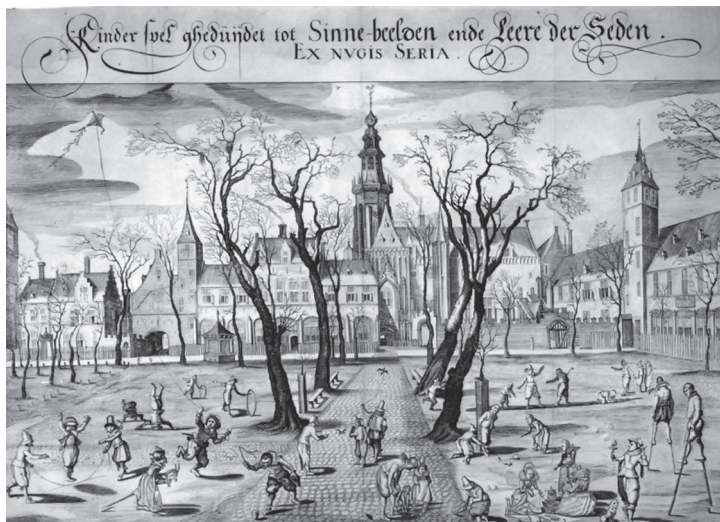 Kinder spel gheduijdet tot Sinne-beelden ende Leere der Seden.
EX NVGIS SERIA.